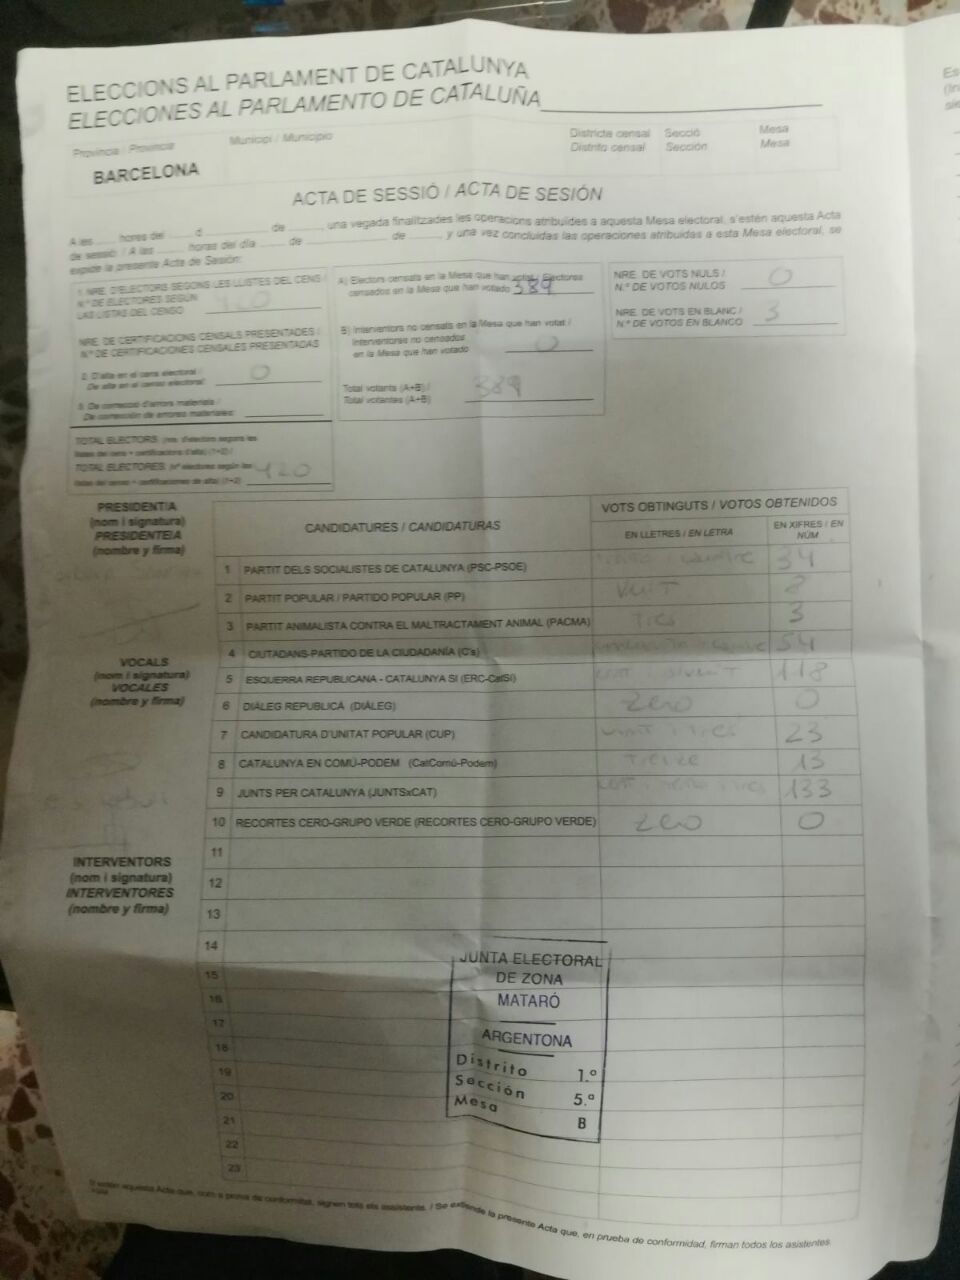 ELECCIONS AL PARLAMENT DE CATALUNYA
ELECCIONES AL PARLAMENTO DE CATALUÑA
Província / Provincia
Municipi / Municipio
Districte censal Secció Mesa
Distrito censal Sección Mesa
BARCELONA
ACTA DE SESSIÓ / ACTA DE SESIÓN
A les hores del d de , una vegada finalitzades les operacions atribuïdes a aquesta Mesa electoral, s'estén aquesta Acta
de sessió / A las horas del día de de , y una vez concluidas las operaciones atribuidas a esta Mesa electoral, se
expide la presente Acta de Sesión:
1. NRE. D'ELECTORS SEGONS LES LLISTES DEL CENS /
N.º DE ELECTORES SEGÚN
LAS LISTAS DEL CENSO
NRE. DE CERTIFICACIONS CENSALS PRESENTADES /
N.º DE CERTIFICACIONES CENSALES PRESENTADAS
2. D'alta en el cens electoral /
De alta en el censo electoral: 0
3. De correcció d'errors materials /
De corrección de errores materiales:
TOTAL ELECTORS (nre. d'electors segons les
llistes del cens + certificacions d'alta) (1+2) /
TOTAL ELECTORES (Nº electores según las
listas del censo + certificaciones de alta) (1+2) 420
A) Electors censats en la Mesa que han votat / Electores
censados en la Mesa que han votado 389
B) Interventors no censats en la Mesa que han votat /
Interventores no censados
en la Mesa que han votado 0
Total votants (A+B) /
Total votantes (A+B) 389
NRE. DE VOTS NULS /
N.º DE VOTOS NULOS 0
NRE. DE VOTS EN BLANC /
N.º DE VOTOS EN BLANCO 3
PRESIDENTIA
(nom i signatura)
PRESIDENTEIA
(nombre y firma)
VOCALS
(nom i signatura)
VOCALES
(nombre y firma)
INTERVENTORS
(nom i signatura)
INTERVENTORES
(nombre y firma)
CANDIDATURES / CANDIDATURAS
VOTS OBTINGUTS / VOTOS OBTENIDOS
EN LLETRES / EN LETRA
EN XIFRES / EN
NÚM
1 PARTIT DELS SOCIALISTES DE CATALUNYA (PSC-PSOE) 34
2 PARTIT POPULAR / PARTIDO POPULAR (PP) vuit 8
3 PARTIT ANIMALISTA CONTRA EL MALTRACTAMENT ANIMAL (PACMA) tres 3
4 CIUTADANS-PARTIDO DE LA CIUDADANÍA (C's) 54
5 ESQUERRA REPUBLICANA - CATALUNYA SÍ (ERC-CatSÍ) 118
6 DIÀLEG REPUBLICÀ (DIÀLEG) zero 0
7 CANDIDATURA D'UNITAT POPULAR (CUP) vint i tres 23
8 CATALUNYA EN COMÚ-PODEM (CatComú-Podem) tretze 13
9 JUNTS PER CATALUNYA (JUNTSxCAT) 133
10 RECORTES CERO-GRUPO VERDE (RECORTES CERO-GRUPO VERDE) zero 0
11
12
13
14
15
16
17
18
19
20
21
22
23
JUNTA ELECTORAL
DE ZONA
MATARÓ
ARGENTONA
Distrito 1.º
Sección 5.ª
Mesa B
S'estén aquesta Acta que, com a prova de conformitat, signen tots els assistents. / Se extiende la presente Acta que, en prueba de conformidad, firman todos los asistentes.